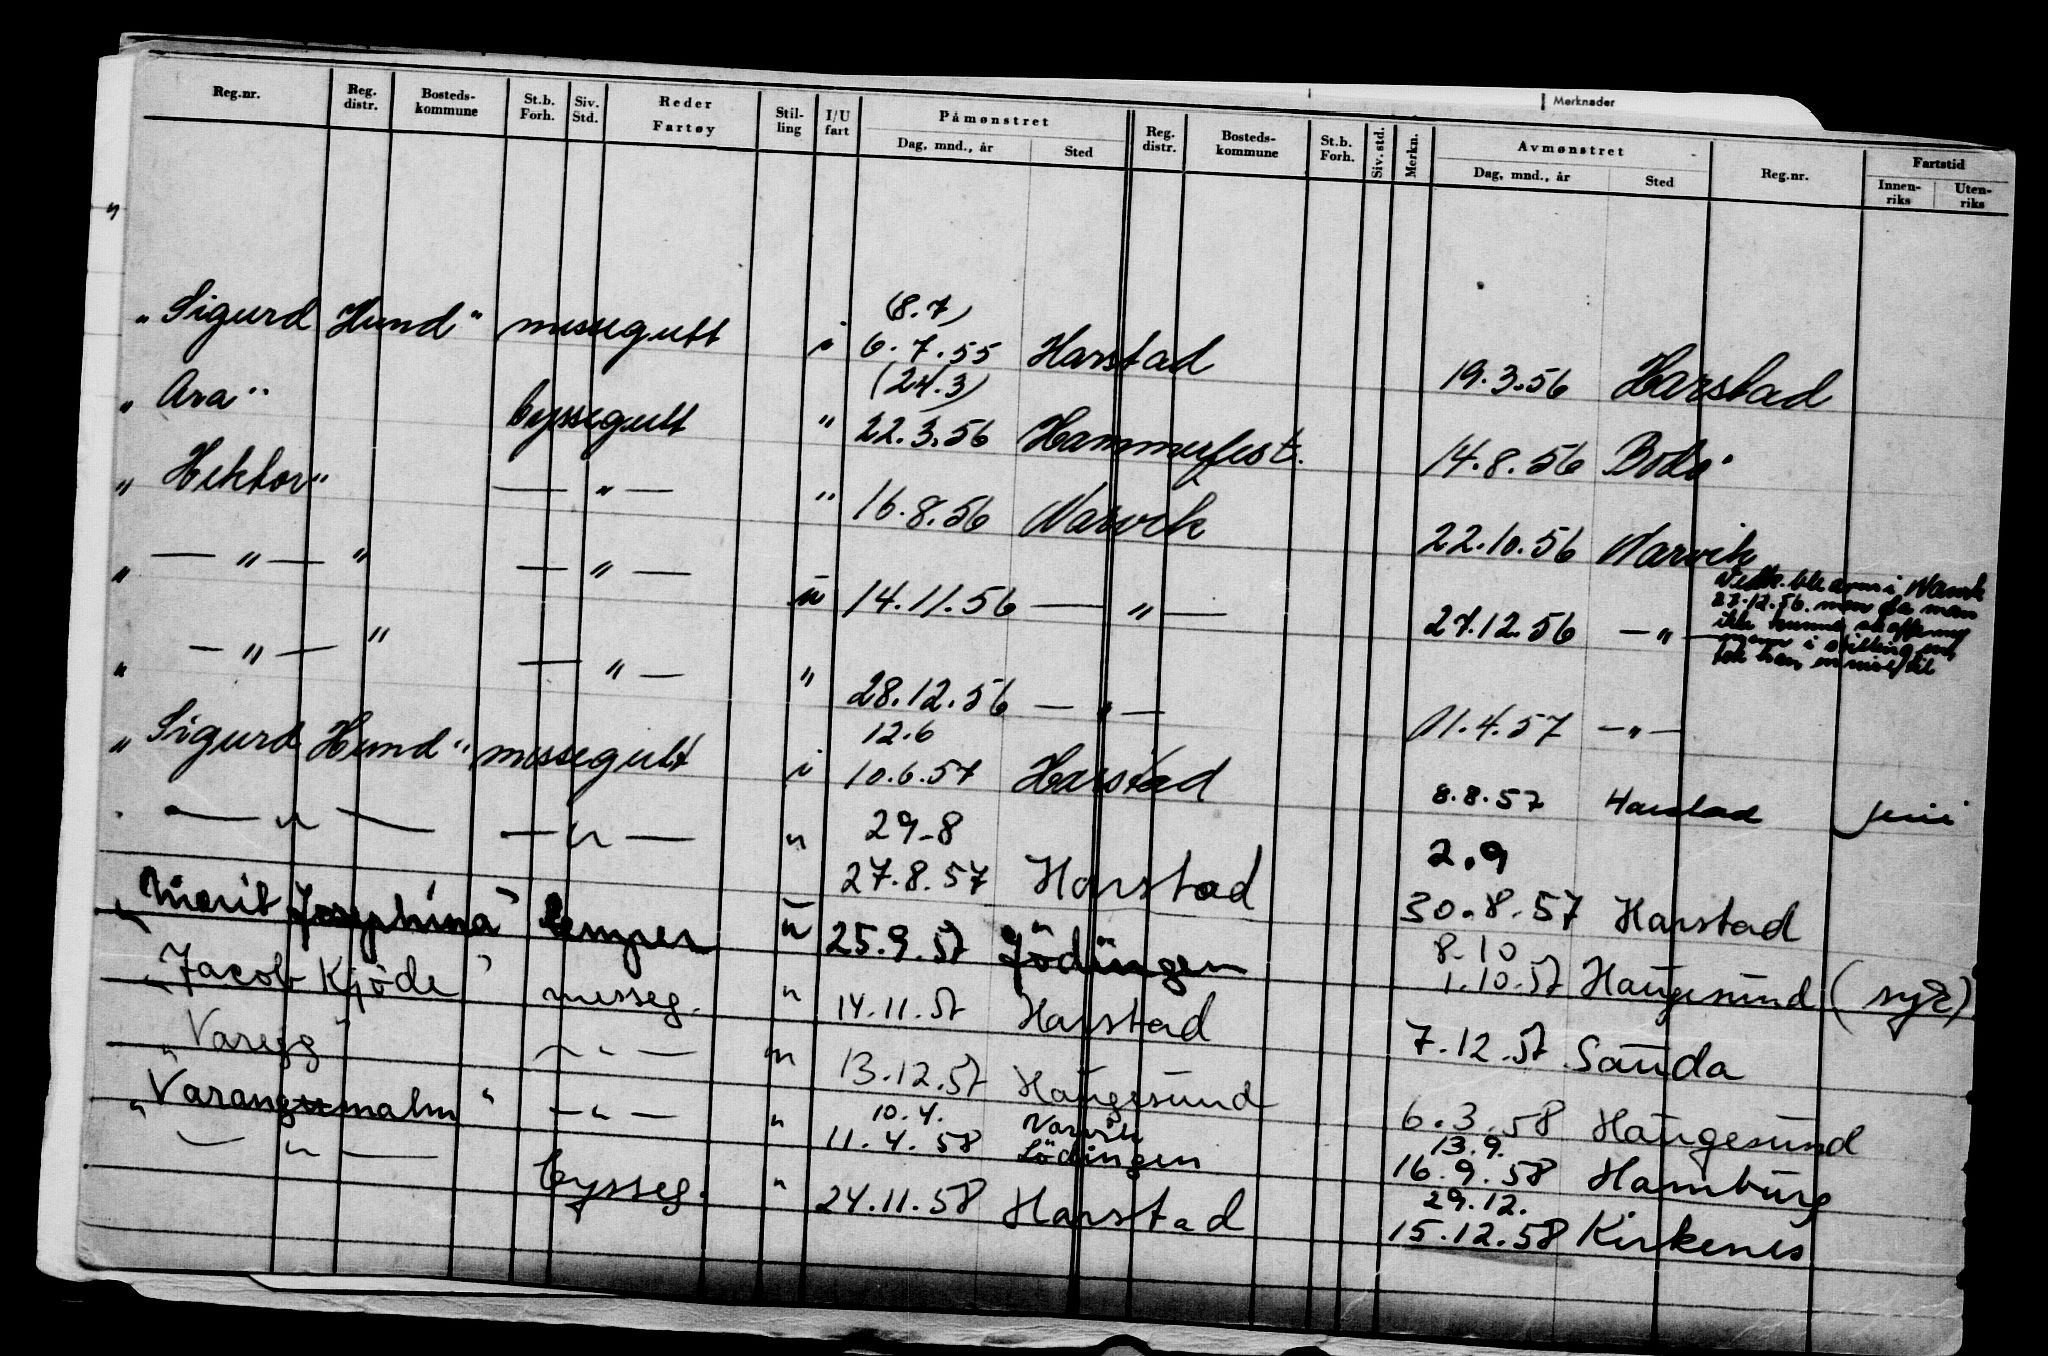 Merknader
Reg.nr. Reg. distr. Bosteds-kommune St.b. Forh. Siv. Std. Reder Fartøy Stil-ling I/U fart Påmønstret Dag, mnd., år Sted Reg. distr. Bosteds-kommune St.b. Forh. Siv. std. Merkn. Avmønstret Dag, mnd., år Sted Reg.nr. Fartstid Innen-riks Uten-riks
(8.7)
"Sigurd Hund" messegutt i 6.7.55 Harstad 19.3.56 Harstad
(24.3)
"Ara" byssegutt " 22.3.56 Hammerfest. 14.8.56 Bodø
"Hektor" — " — " 16.8.56 Narvik 22.10.56 Narvik
" — " — " — " — ü 14.11.56 — " — 27.12.56 — " —
27.12.56. men da man
ikke kunne
mann i stilling
" — " — " — " — " 28.12.56 — " — 11.4.57 — " —
12.6
"Sigurd Hund" messegutt i 10.6.57 Harstad 8.8.57 Harstad
29-8 2.9
— " — — " — " 27.8.57 Harstad 30.8.57 Harstad
8-10
"Marit Josephina" lemper ü 25.9.57 Lödingen 1.10.57 Haugesund (syk)
"Jacob Kjøde" messeg. " 14.11.57 Harstad 7.12.57 Sauda
"Varegg" — " — " 13.12.57 Haugesund 6.3.58 Haugesund
10.4. Narvik 13.9.
"Varangmalm" — " — " 11.4.58 Lödingen 16.9.58 Hamburg
29.12.
— " — bysseg. " 24.11.58 Harstad 15.12.58 Kirkenes